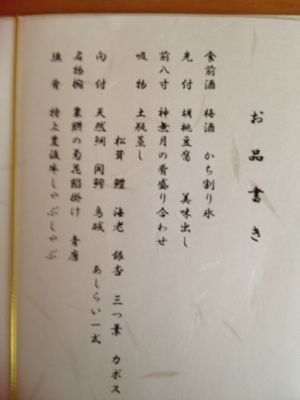 お品書き
食前酒 梅酒 かち割り氷
先付 胡桃豆腐 美味出し
前八寸 神無月の肴盛り合わせ
吸物 土瓶蒸し
松茸 鱧 海老 銀杏 三つ葉 カボス
向付 天然鯛 間鰺 烏賊 あしらい一式
名物椀 粟餅の菊花餡掛け 青唐
強肴 特上豊後牛しゃぶしゃぶ